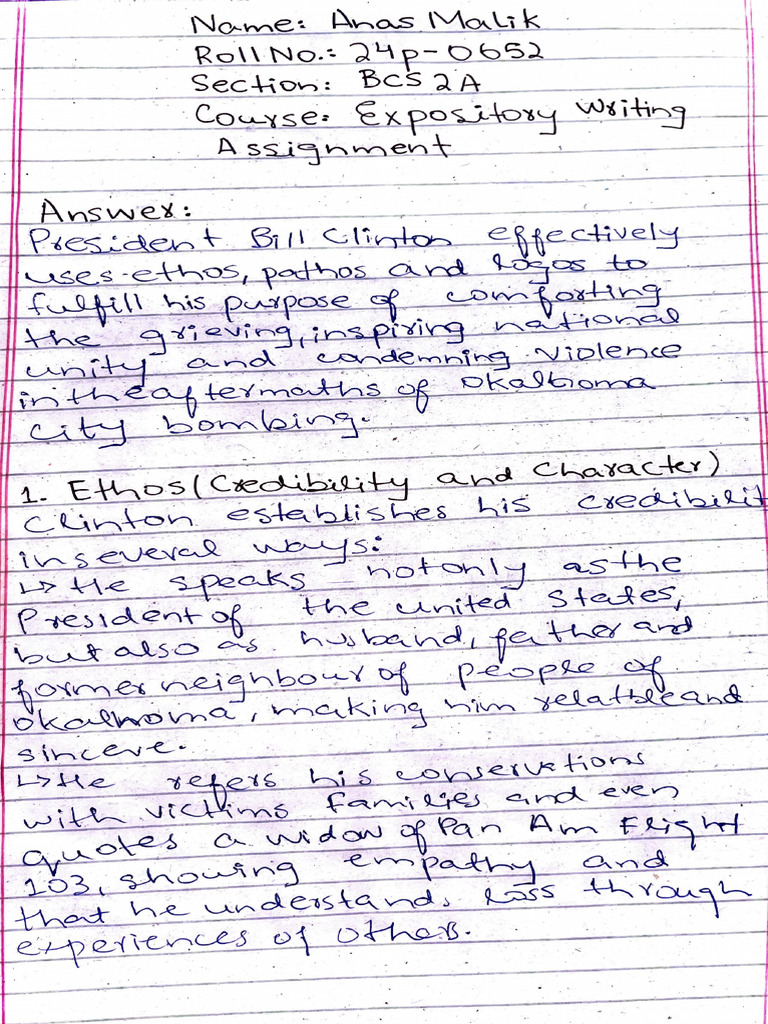 Name: Anas Malik
Roll No.: 24p-0652
Section: BCS 2A
Course: Expository Writing
Assignment
Answer:
President Bill Clinton effectively
uses ethos, pathos and logos to
fulfill his purpose of comforting
the grieving, inspiring national
unity and condemning violence
in the aftermaths of Okalhoma
city bombing.
1. Ethos (Credibility and Character)
Clinton establishes his credibilit
in several ways:
↳ He speaks not only as the
President of the united States,
but also as husband, father and
former neighbour of people of
Okalhoma, making him relatble and
sincere.
↳ He refers his conservations
with victims families and even
quotes a widow of Pan Am Flight
103, showing empathy and
that he understands loss through
experiences of others.